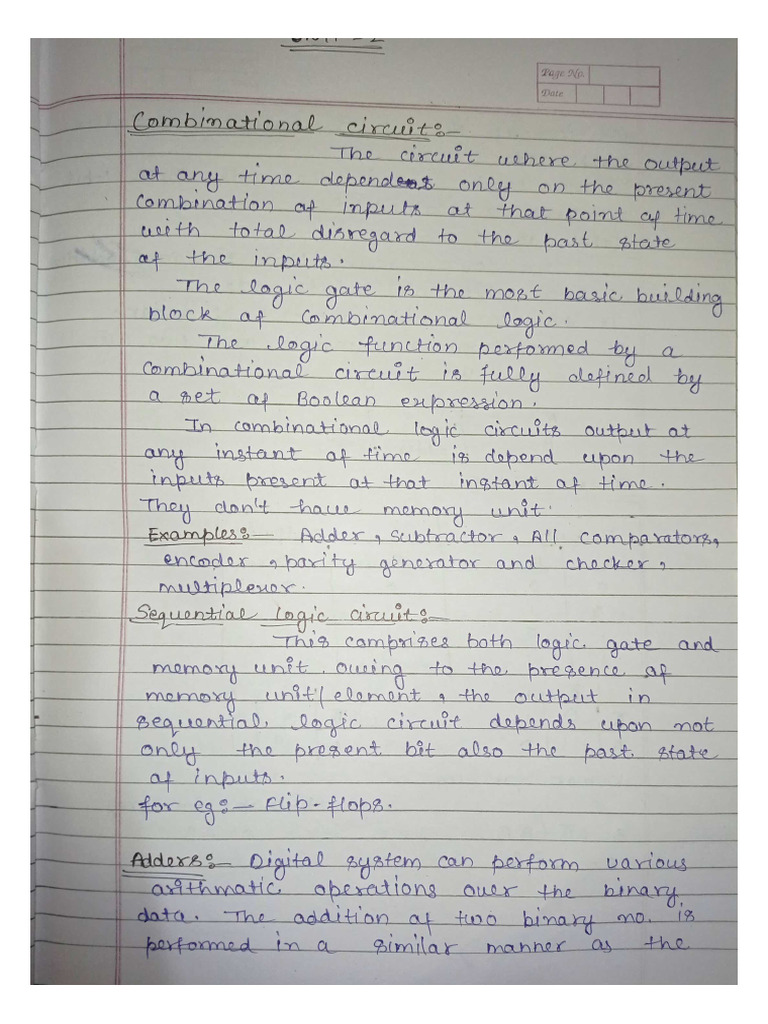 Page No.
Date
Combinational circuit:-
The circuit where the output
at any time depends only on the present
combination of inputs at that point of time
with total disregard to the past state
of the inputs.
The logic gate is the most basic building
block of combinational logic.
The logic function performed by a
combinational circuit is fully defined by
a set of Boolean expression.
In combinational logic circuits output at
any instant of time is depend upon the
inputs present at that instant of time.
They don't have memory unit.
Examples:- Adder, subtractor, All comparators,
encoder, parity generator and checker,
multiplexor.
Sequential logic circuit:-
This comprises both logic gate and
memory unit. owing to the presence of
memory unit/element, the output in
sequential logic circuit depends upon not
only the present bit also the past state
of inputs.
for eg:- Flip-flops.
Adders:- Digital system can perform various
arithmatic operations over the binary
data. The addition of two binary no. is
performed in a similar manner as the